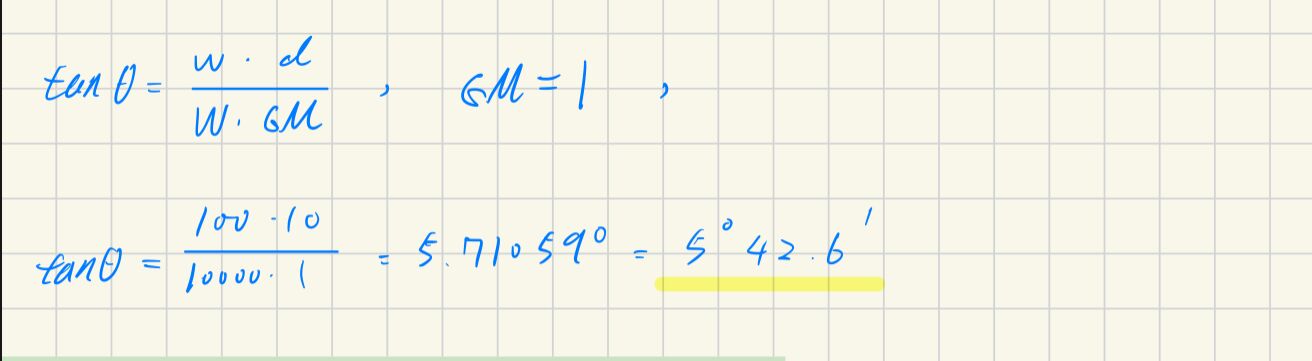 tan θ = w · d / W · GM , GM = 1 ,
tan θ = 100 · 10 / 10000 · 1 = 5.71059° = 5° 42.6'